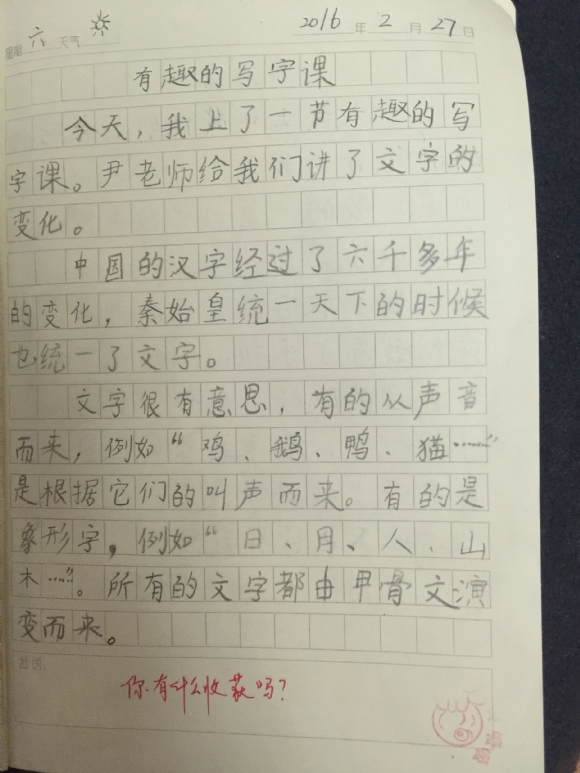 星期 六 天气 2016 年 2 月 27 日
有趣的写字课
今天,我上了一节有趣的写
字课。尹老师给我们讲了文字的
变化。
中国的汉字经过了六千多年
的变化,秦始皇统一天下的时候
也统一了文字。
文字很有意思,有的从声音
而来,例如“鸡、鹅、鸭、猫……”
是根据它们的叫声而来。有的是
象形字,例如“日、月、人、山
木……”。所有的文字都由甲骨文演
变而来。
你有什么收获吗?